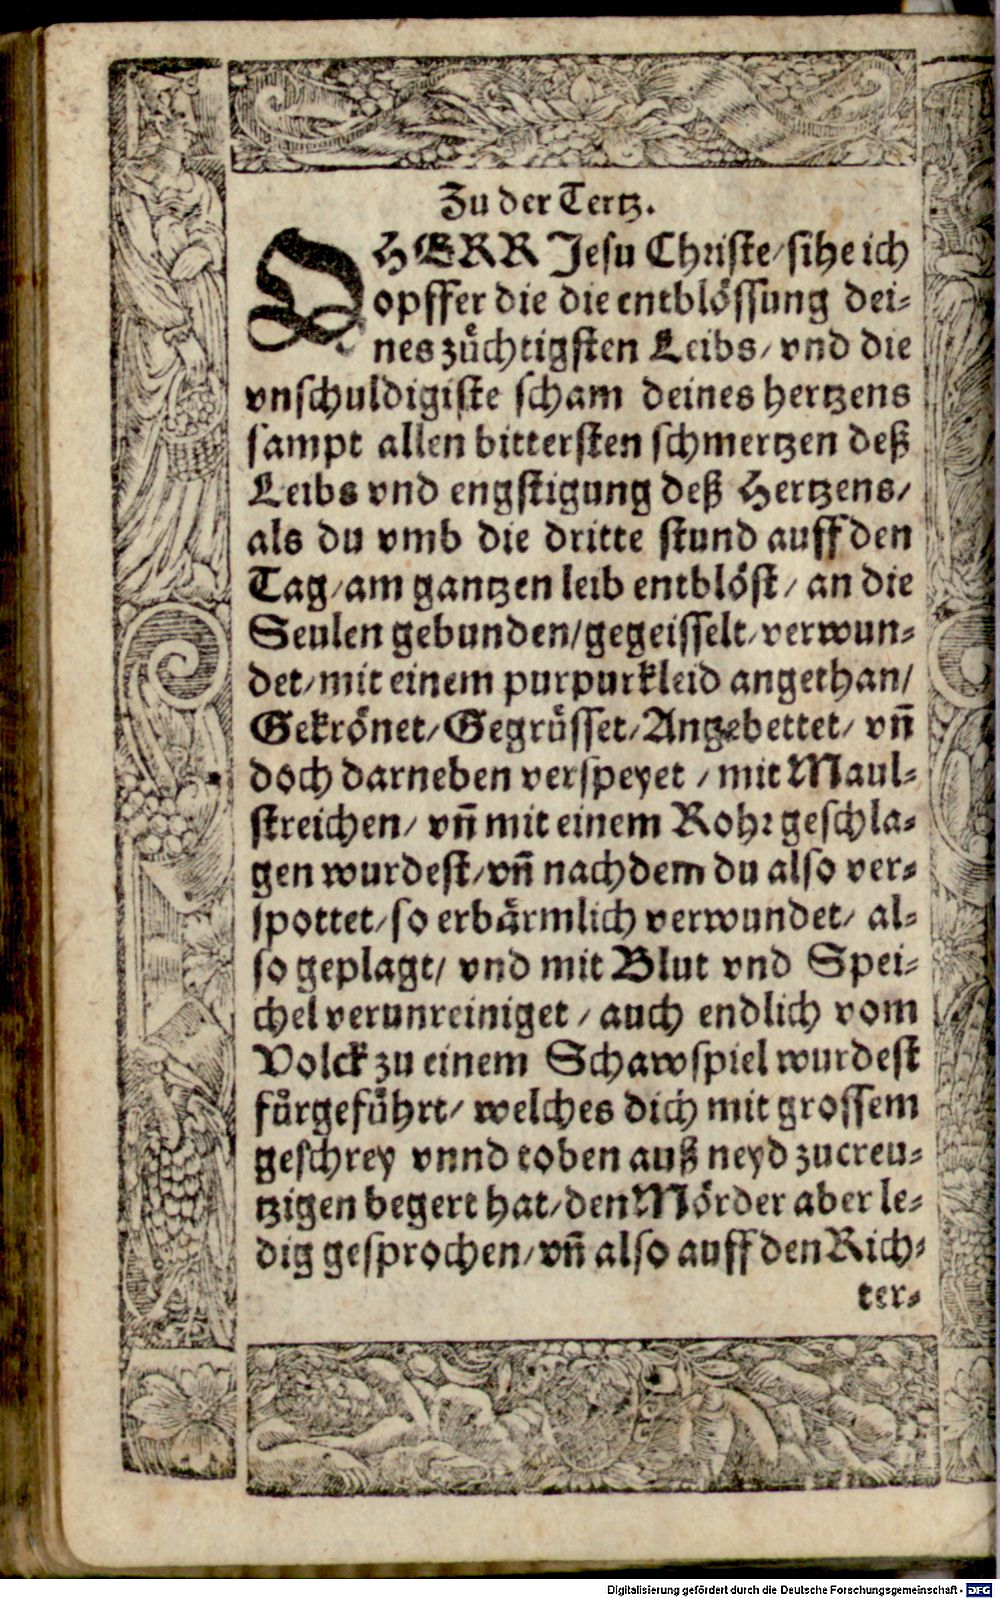 Zu der Tertz.
O HERR Jesu Christe/ sihe ich
opffer die die entblössung dei-
nes zůchtigsten Leibs/ vnd die
vnschuldigiste scham deines hertzens
sampt allen bittersten schmertzen deß
Leibs vnd engstigung deß Hertzens/
als du vmb die dritte stund auff den
Tag/ am gantzen leib entblöst/ an die
Seulen gebunden/ gegeisselt/ verwun-
det/ mit einem purpurkleid angethan/
Gekrönet/ Gegrůsset/ Angebettet/ vñ
doch darneben verspeyet / mit Maul-
streichen/ vñ mit einem Rohr geschla-
gen wurdest/ vñ nachdem du also ver-
spottet/ so erbärmlich verwundet/ al-
so geplagt/ vnd mit Blut vnd Spei-
chel verunreiniget / auch endlich vom
Volck zu einem Schawspiel wurdest
fůrgefůhrt/ welches dich mit grossem
geschrey vnnd toben auß neyd zucreu-
tzigen begert hat/ den Mörder aber le-
dig gesprochen/ vñ also auff den Rich-
ter-
Digitalisierung gefördert durch die Deutsche Forschungsgemeinschaft - DFG